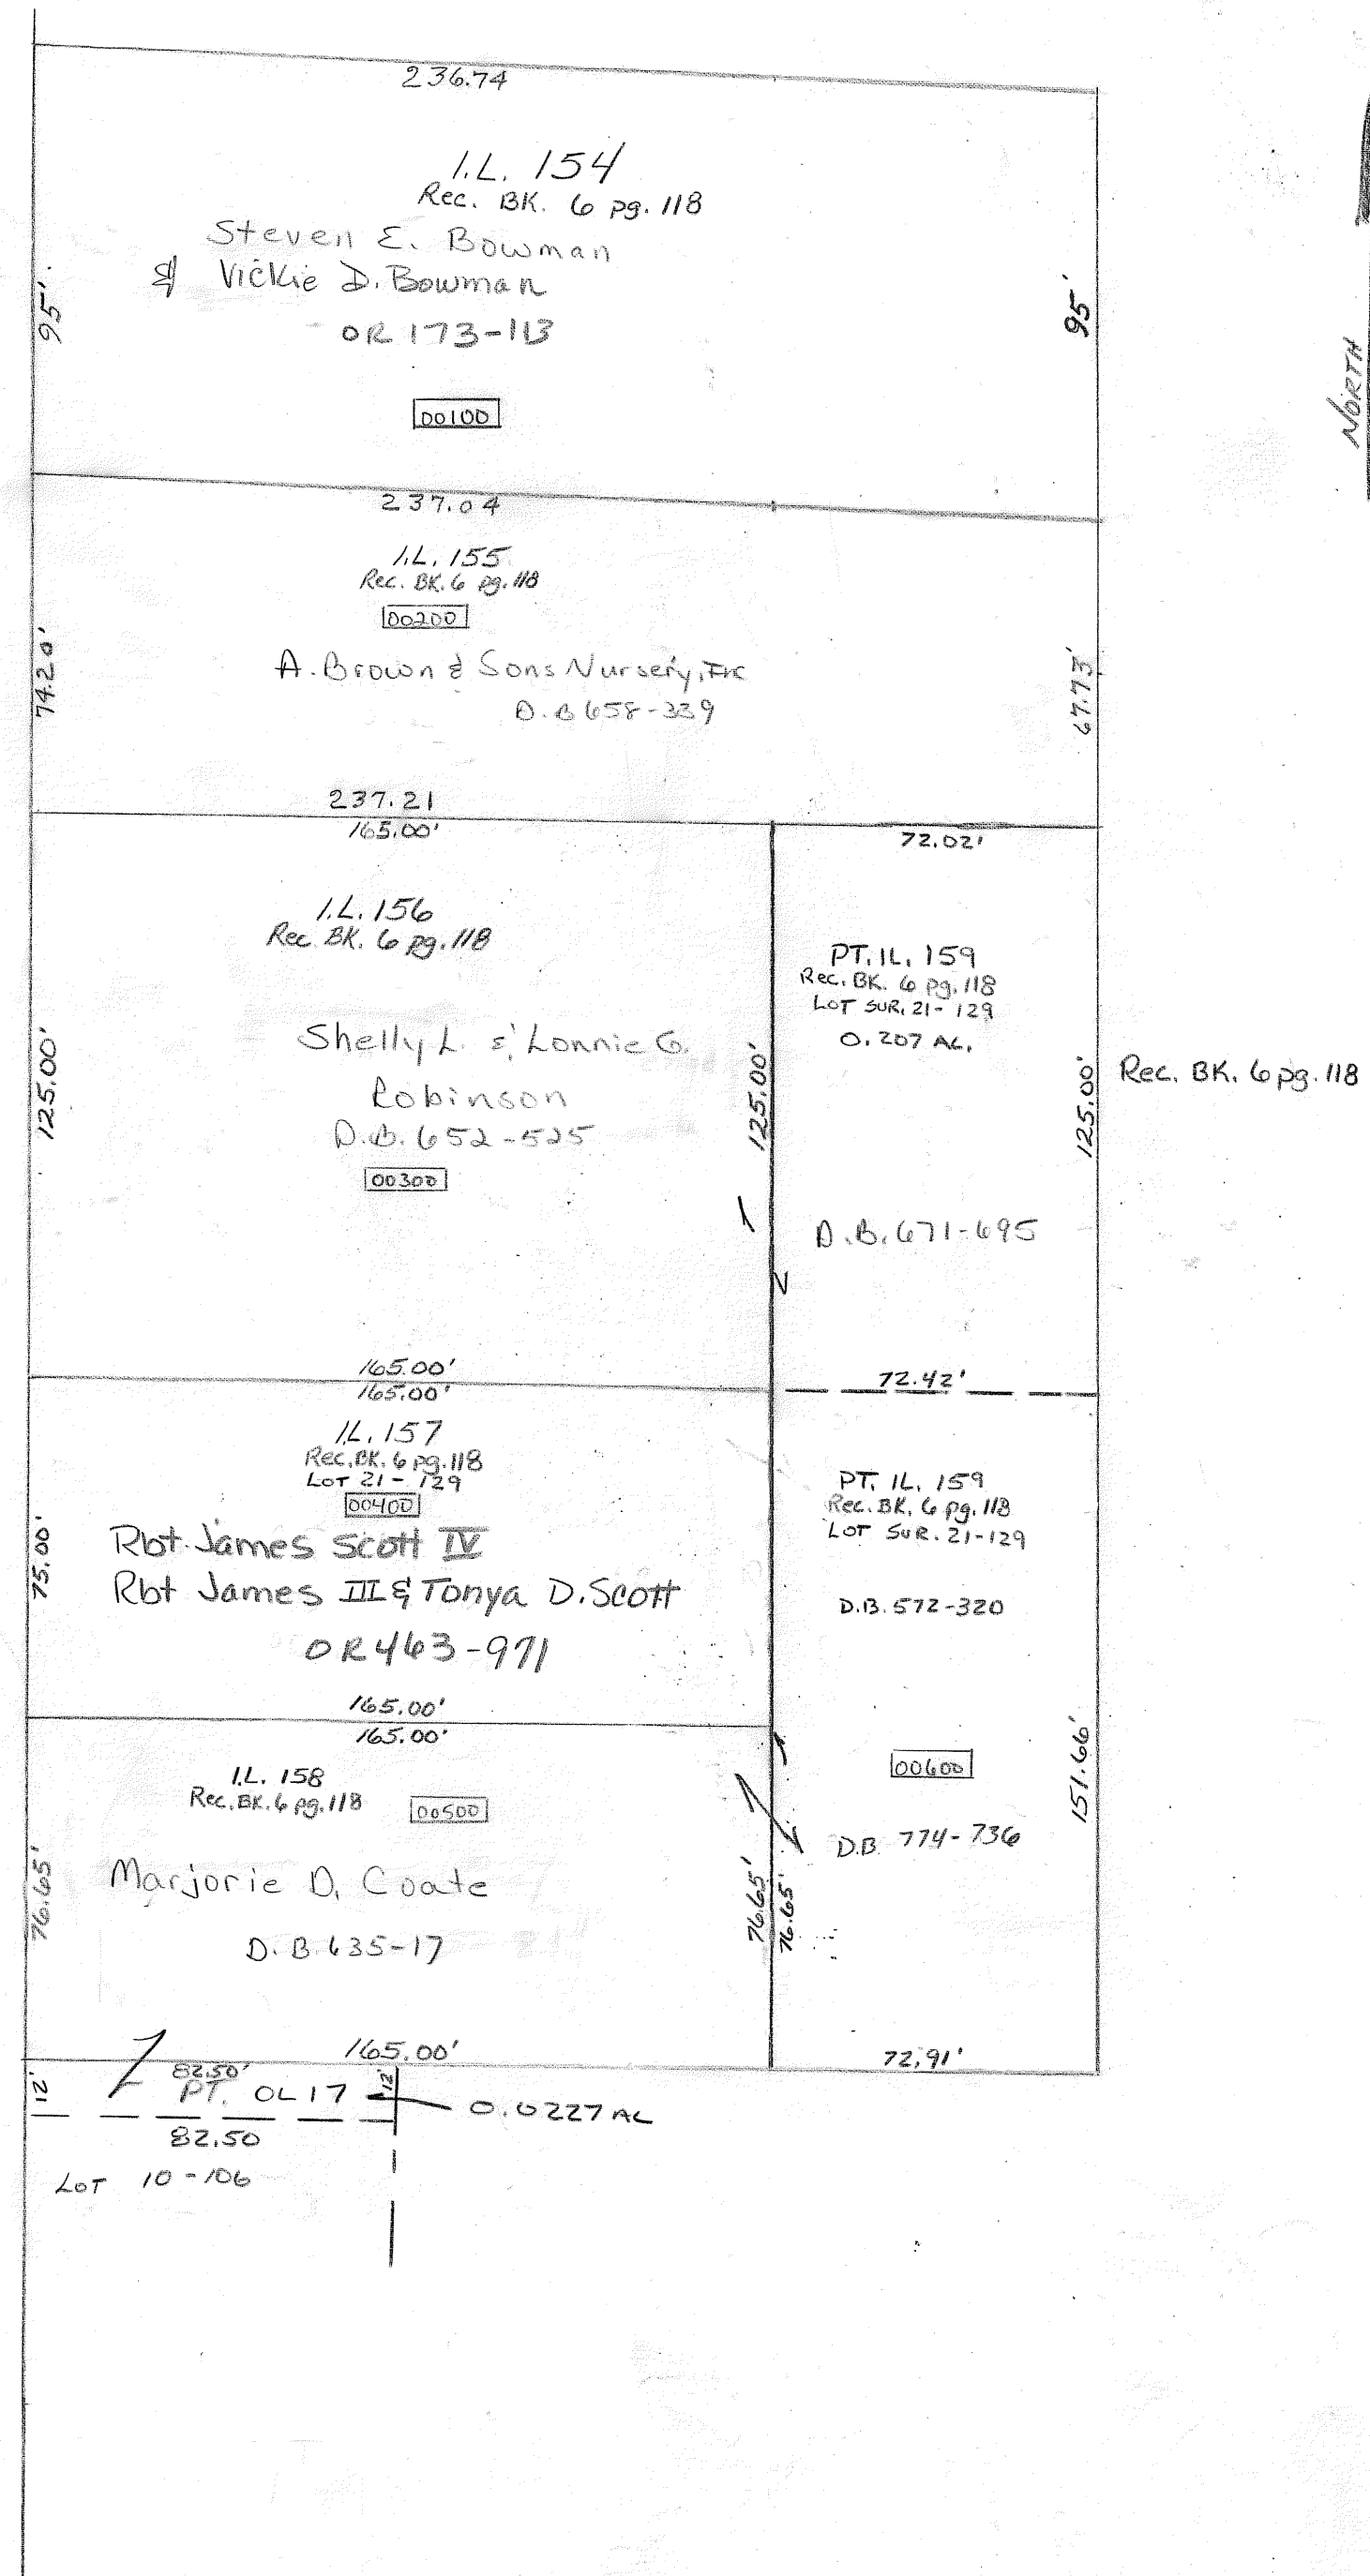 236.74
I.L. 154
Rec. BK. 6 pg. 118
Steven E. Bowman
& Vickie D. Bowman
OR 173-113
95'
95'
00100
NORTH
237.04
I.L. 155
Rec. BK. 6 pg. 118
00200
A. Brown & Sons Nursery, Inc
D.B 658-339
74.20'
67.73'
237.21
165.00'
72.02'
I.L. 156
Rec. BK. 6 pg. 118
Shelly L. & Lonnie G.
Robinson
D.B. 652-525
00300
125.00'
125.00'
PT. IL. 159
Rec. BK. 6 pg. 118
LOT SUR. 21-129
0.207 AC.
D.B. 671-695
125.00'
Rec. BK. 6 pg. 118
165.00'
165.00'
72.42'
IL. 157
Rec. BK. 6 pg. 118
LOT 21-129
00400
Rbt. James Scott IV
Rbt James III & Tonya D. Scott
OR 463-971
75.00'
PT. IL. 159
Rec. BK. 6 pg. 118
LOT SUR. 21-129
D.B. 572-320
00600
D.B. 774-736
151.66'
165.00'
165.00'
I.L. 158
Rec. BK. 6 pg. 118
00500
Marjorie D. Coate
D.B. 635-17
76.65'
76.65'
76.65'
165.00'
72.91'
12'
82.50'
PT. OL 17
12'
0.0227 AC
82.50
LOT 10-106